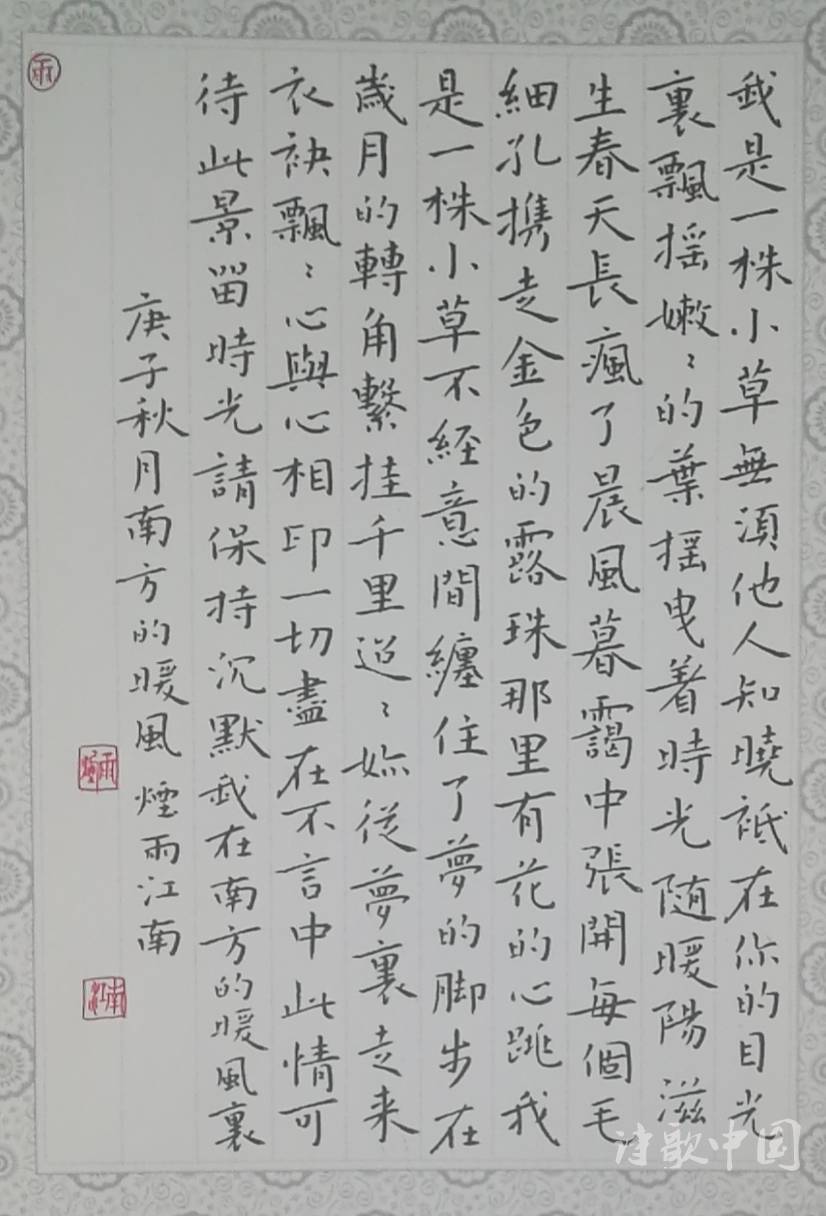 我是一株小草無須他人知曉祗在你的目光
裏飄摇嫩〻的葉摇曳着時光随暖陽滋
生春天長瘋了晨風暮靄中張開每個毛
細孔携走金色的露珠那里有花的心跳我
是一株小草不経意間纏住了夢的脚步在
歲月的轉角繫挂千里迢〻妳從夢裏走来
衣袂飄〻心與心相印一切盡在不言中此情可
待此景留時光請保持沉默我在南方的暖風裏
庚子秋月南方的暖風 煙雨江南
雨
诗歌中国